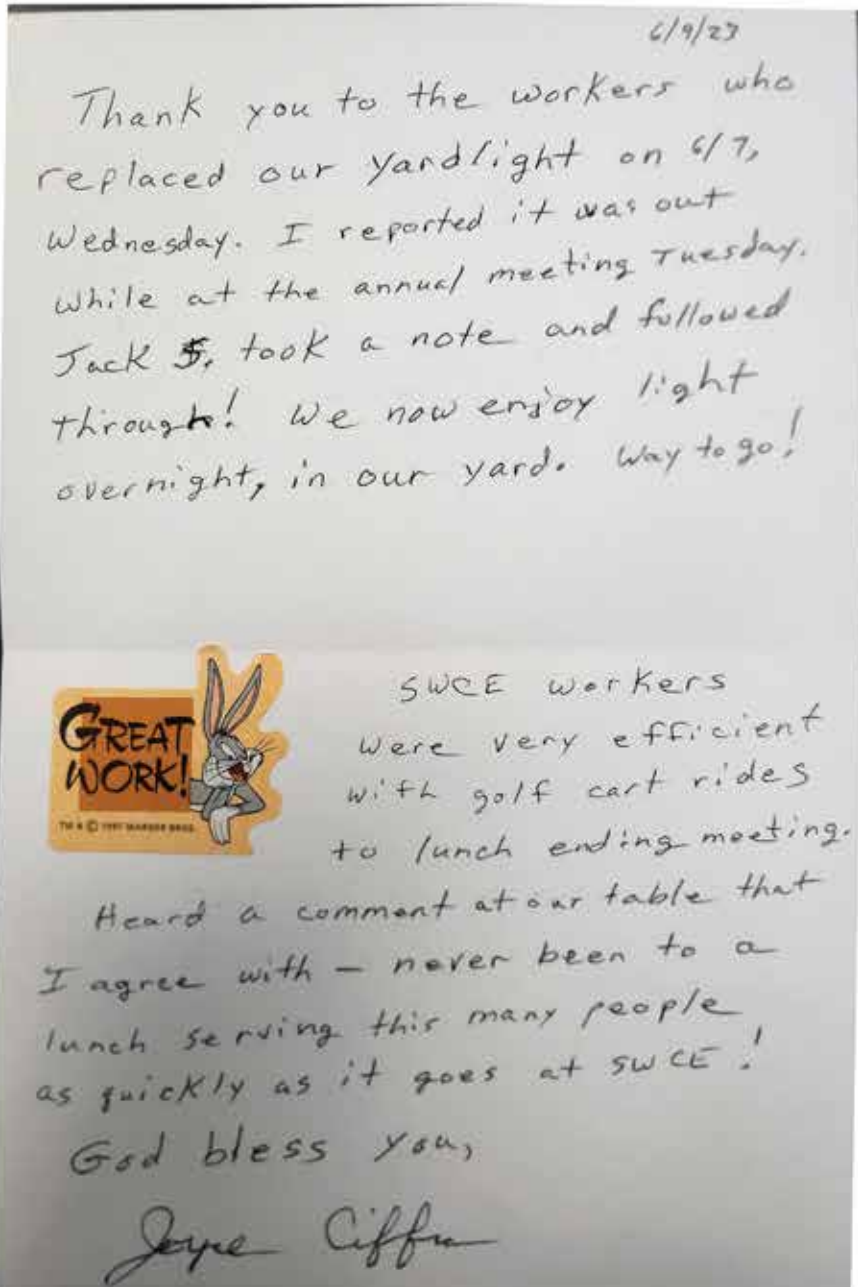 6/9/23
Thank you to the workers who
replaced our yardlight on 6/7,
Wednesday. I reported it was out
while at the annual meeting Tuesday.
Jack S. took a note and followed
through! We now enjoy light
overnight, in our yard. Way to go!
GREAT
WORK!
TM & © 1997 WARNER BROS.
SWCE workers
were very efficient
with golf cart rides
to lunch ending meeting.
Heard a comment at our table that
I agree with — never been to a
lunch serving this many people
as quickly as it goes at SWCE!
God bless you,
Joyce